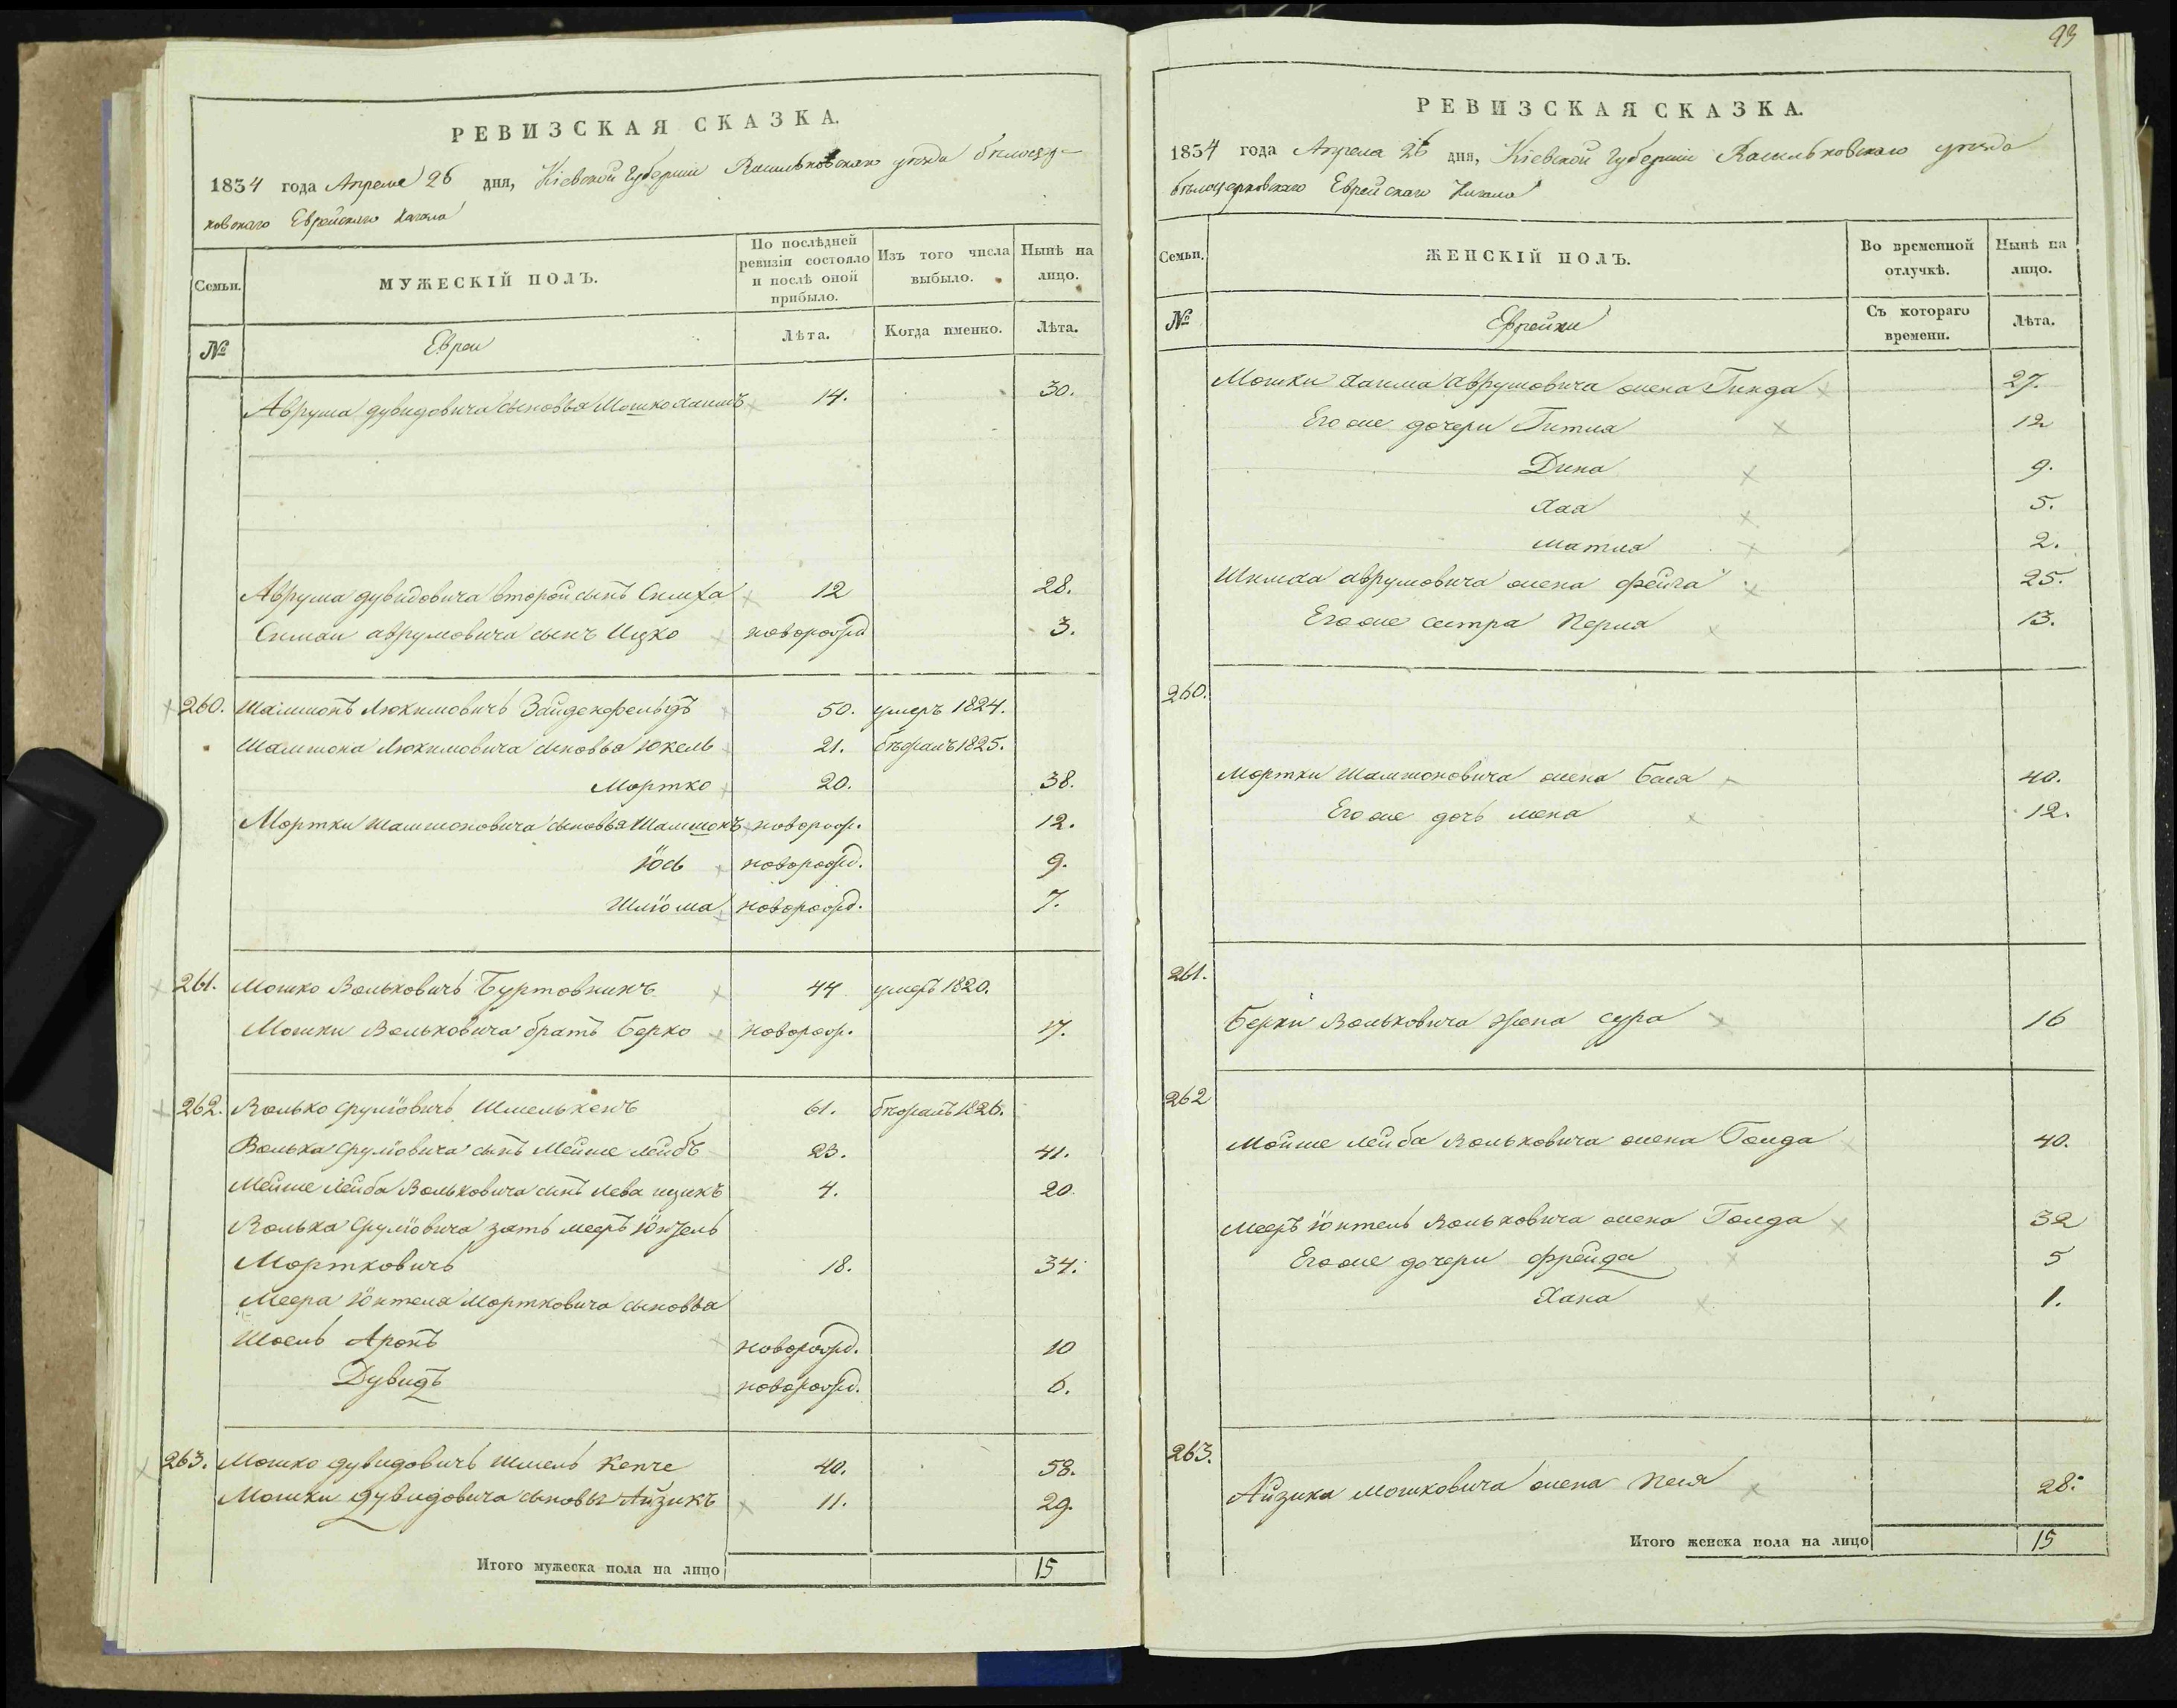 93
РЕВИЗСКАЯ СКАЗКА.
1834 года Апреля 26 дня, Кіевской Губерніи Васильковскаго уѣзда бѣлоцер-
ковскаго Еврейскаго Кагала
Семьи.
МУЖЕСКІЙ ПОЛЪ.
По послѣдней ревизіи состояло и послѣ оной прибыло.
Изъ того числа выбыло.
Нынѣ на лицо.
№
Евреи
Лѣта.
Когда именно.
Лѣта.
Аврума дувидовича сыновья Мошко хаимъ 14. 30.
Аврума дувидовича второй сынъ Симха 12 28.
Симхи аврумовича сынъ Ицко новорожд 3.
260. Шамшонъ Люхимовичъ Зайденфельдъ 50. умеръ 1824.
Шамшона Люхимовича сыновья Юкель 21. бѣжалъ 1825.
Мортко 20. 38.
Мортки Шамшоновича сыновья Шамшонъ новорож. 12.
Юсь новорожд. 9.
Шліома новорожд. 7.
261. Мошко Вольковичъ Буртовникъ 44 умеръ 1820.
Мошки Вольковича братъ Берко новорож. 17.
262. Волько Срулiовичъ Шмелькенъ 61. бѣжалъ 1826.
Волька Срулiовича сынъ Мейше Лейбъ 23. 41.
Мейше Лейба Вольковича сынъ Лева ицикъ 4. 20
Волька Срулiовича зять мееръ Юнтель
Мортковичъ 18. 34.
Меера Юнтеля Мортковича сыновья
Шоель Аронъ новорожд. 10
Дувидъ новорожд. 6.
263. Мошко дувидовичъ Шмель Кенче 40. 58.
Мошки дувидовича сыновья Айзикъ 11. 29.
Итого мужеска пола на лицо 15
РЕВИЗСКАЯ СКАЗКА.
1834 года Апреля 26 дня, Кіевской Губерніи Васильковскаго уѣзда
бѣлоцерковскаго Еврейскаго Кагала
Семьи.
ЖЕНСКІЙ ПОЛЪ.
Во временной отлучкѣ.
Нынѣ на лицо.
№
Еврейки
Съ котораго времени.
Лѣта.
Мошки хаима аврумовича жена Гинда 27.
Его же дочери Гитля 12
Дина 9.
Хая 5.
Матля 2.
Шимха аврумовича жена фейга 25.
Его же сестра Перля 13.
260.
Мортки Шамшоновича жена бася 40.
Его же дочь 12.
261.
Берки Вольковича жена сура 16
262
Мойше лейба Вольковича жена Голда 40.
Мееръ Юнтель Вольковича жена Голда 32
Его же дочери фрейда 5
Хана 1.
263.
Айзика мошковича жена песя 28.
Итого женска пола на лицо 15